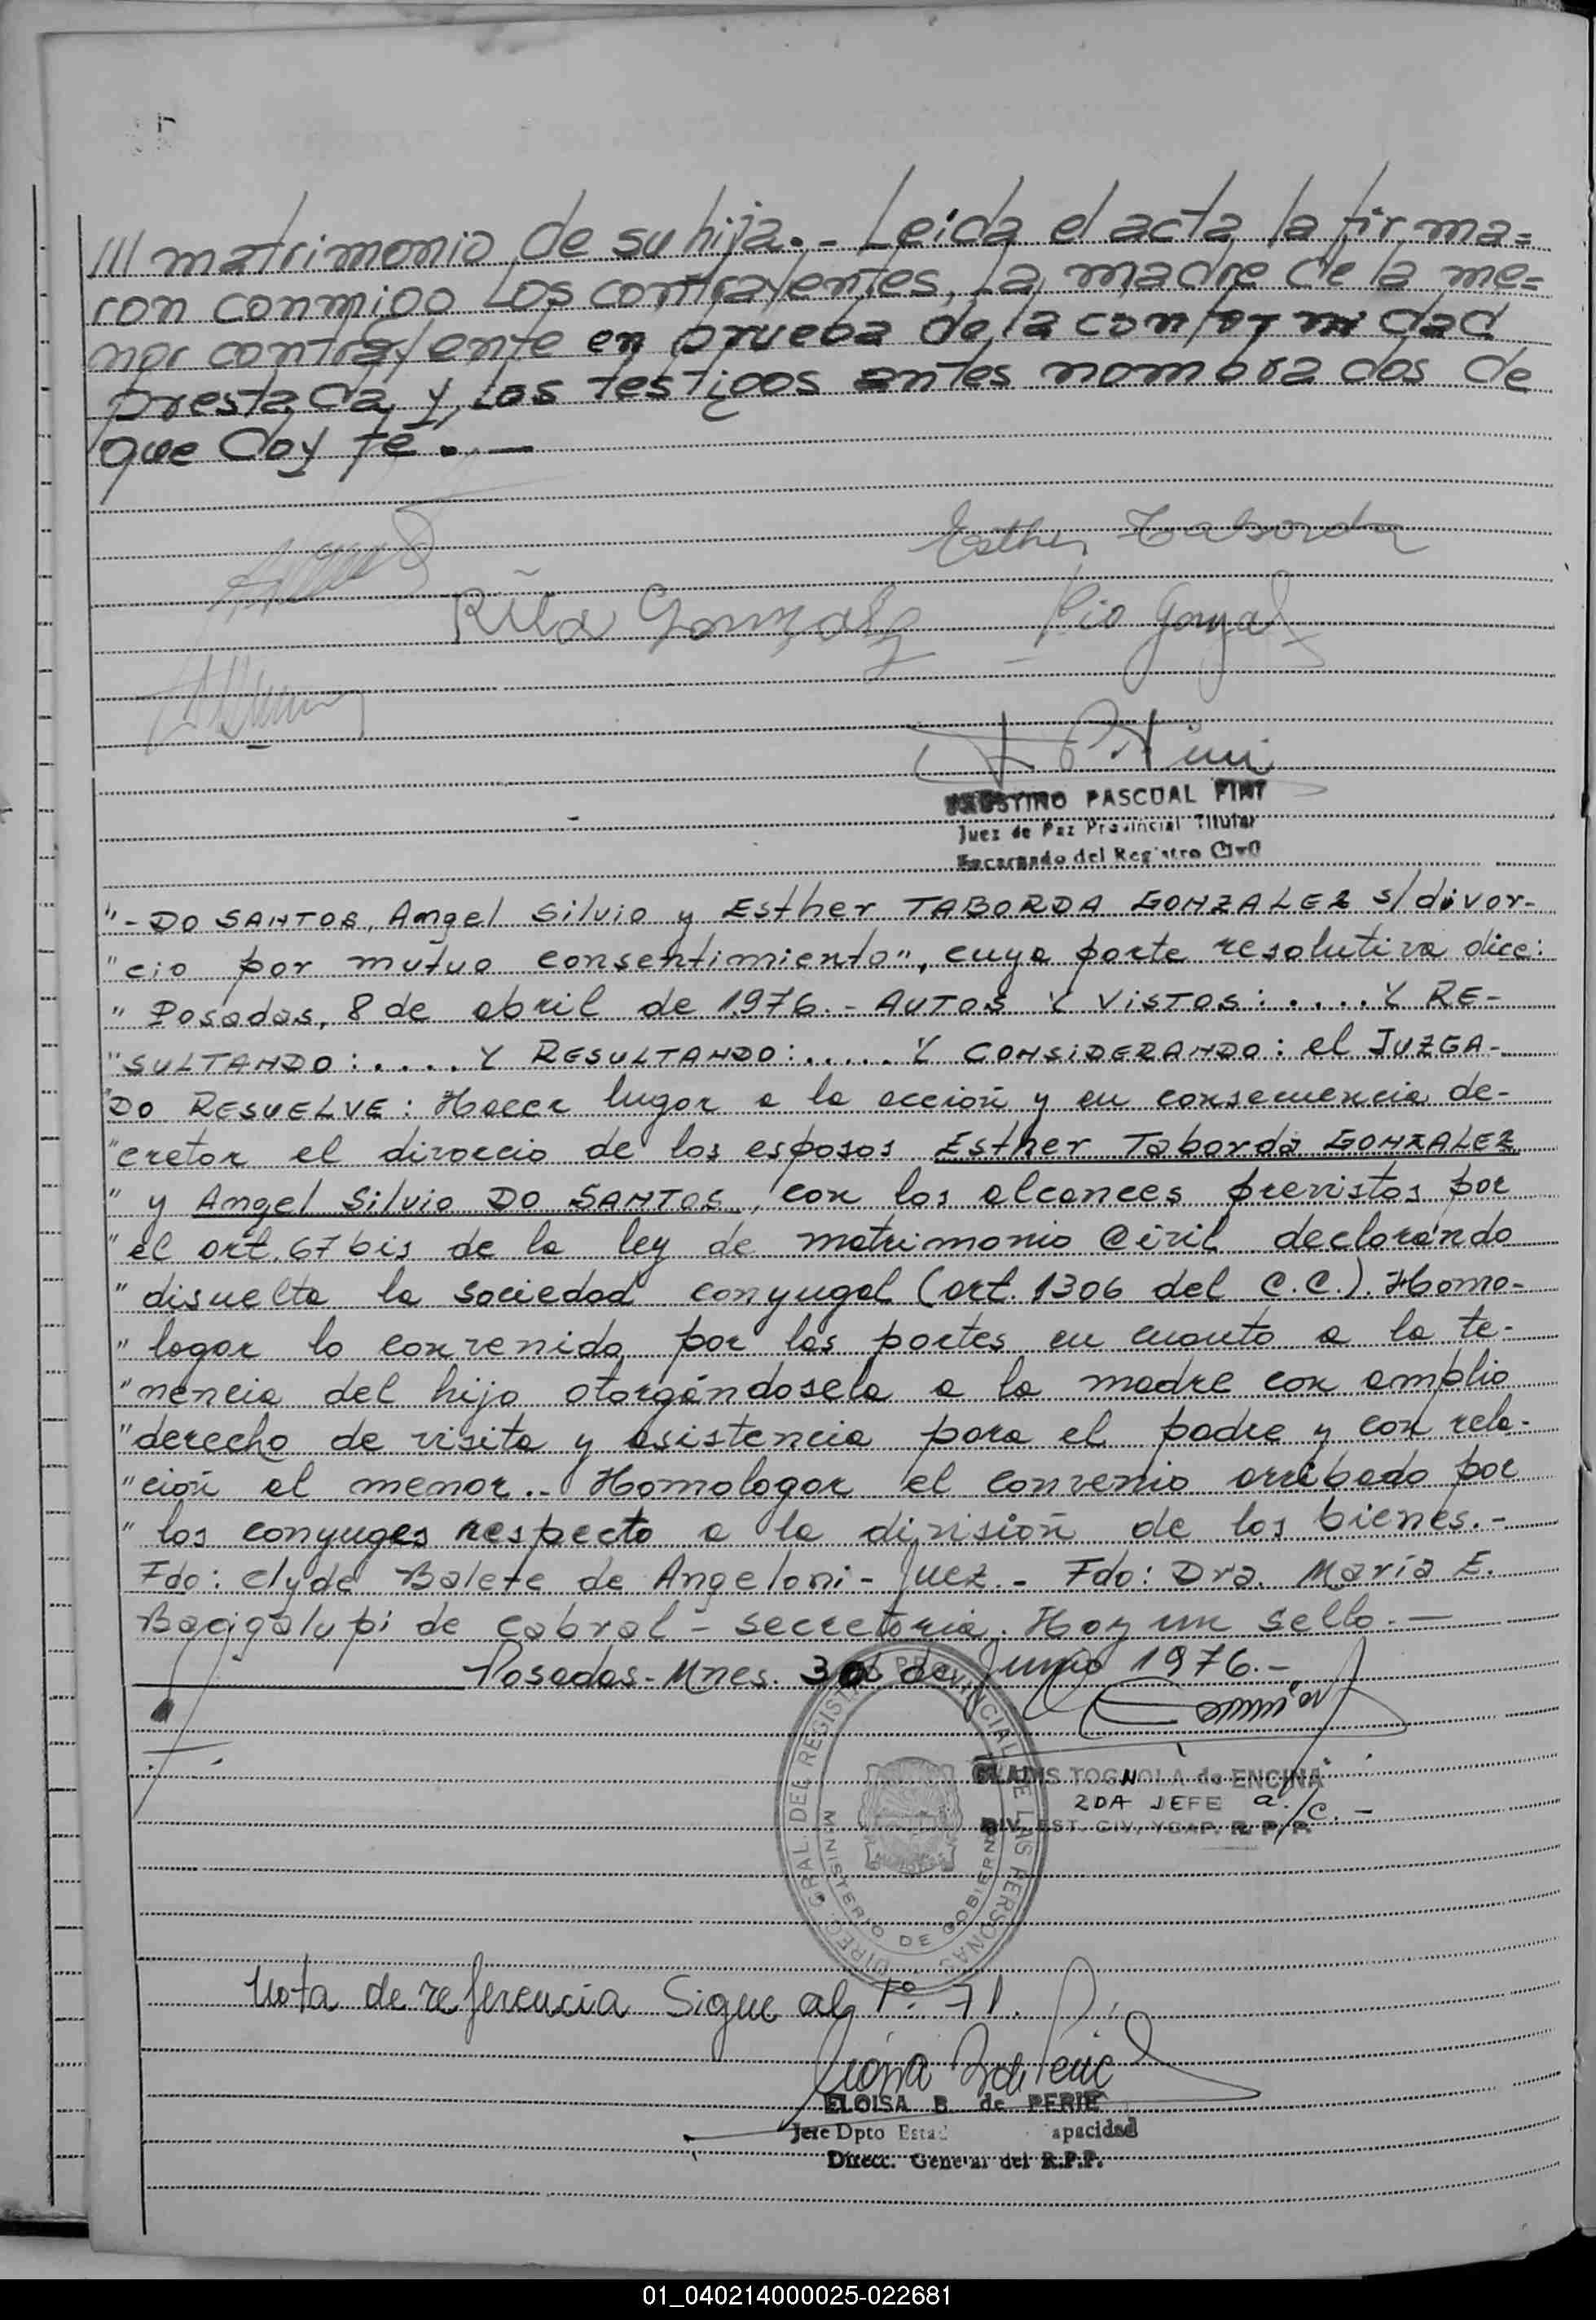 /// matrimonio de su hija.- Leida el acta la firma=
ron conmigo los contrayentes, la madre de la me=
nor contrayente en prueba de la conformidad
prestada y los testigos antes nombrados de
que doy fé.-
Esther Taborda
Rita Gonzalez Pio Gonzalez
PASCUAL
Juez de Paz Provincial Titular
Encargado del Registro Civil
"- DO SANTOS, Angel Silvio y Esther TABORDA GONZALEZ s/divor-
"cio por mutuo consentimiento", cuya parte resolutiva dice:
" Posadas, 8 de abril de 1976.- AUTOS Y VISTOS:.... Y RE-
"SULTANDO:.... Y RESULTANDO:..... Y CONSIDERANDO: el JUZGA-
"DO RESUELVE: Hacer lugar a la acción y en consecuencia de-
"cretar el divorcio de los esposos Esther Taborda GONZALEZ
" y Angel Silvio DO SANTOS, con los alcances previstos por
"el art. 67 bis de la ley de matrimonio Civil declarando
" disuelta la sociedad conyugal (art. 1306 del C.C.). Homo-
" logar lo convenido por las partes en cuanto a la te-
"nencia del hijo otorgándosela a la madre con amplio
"derecho de visita y asistencia para el padre y con rela-
"ción al menor.. Homologar el convenio arribado por
" los conyuges respecto a la división de los bienes.-
Fdo: Clyde Balete de Angeloni - Juez.- Fdo: Dra. María E.
Bacigalupi de Cabral - secretaria. Hay un sello.-
Posadas - Mnes. 30 de Junio 1976.-
GLADIS TOGNOLA de ENCINA
2DA JEFE a./c.-
DIV. EST. CIV. Y CAP. R. P. P.
DIREC. GRAL. DEL REGISTRO PROVINCIAL DE LAS PERSONAS
MINISTERIO DE GOBIERNO
Nota de referencia Sigue al Fº. 71.
ELOISA B. de PERIE
Jefe Dpto Estad apacidad
Direcc. General del R.P.P.
01_040214000025-022681